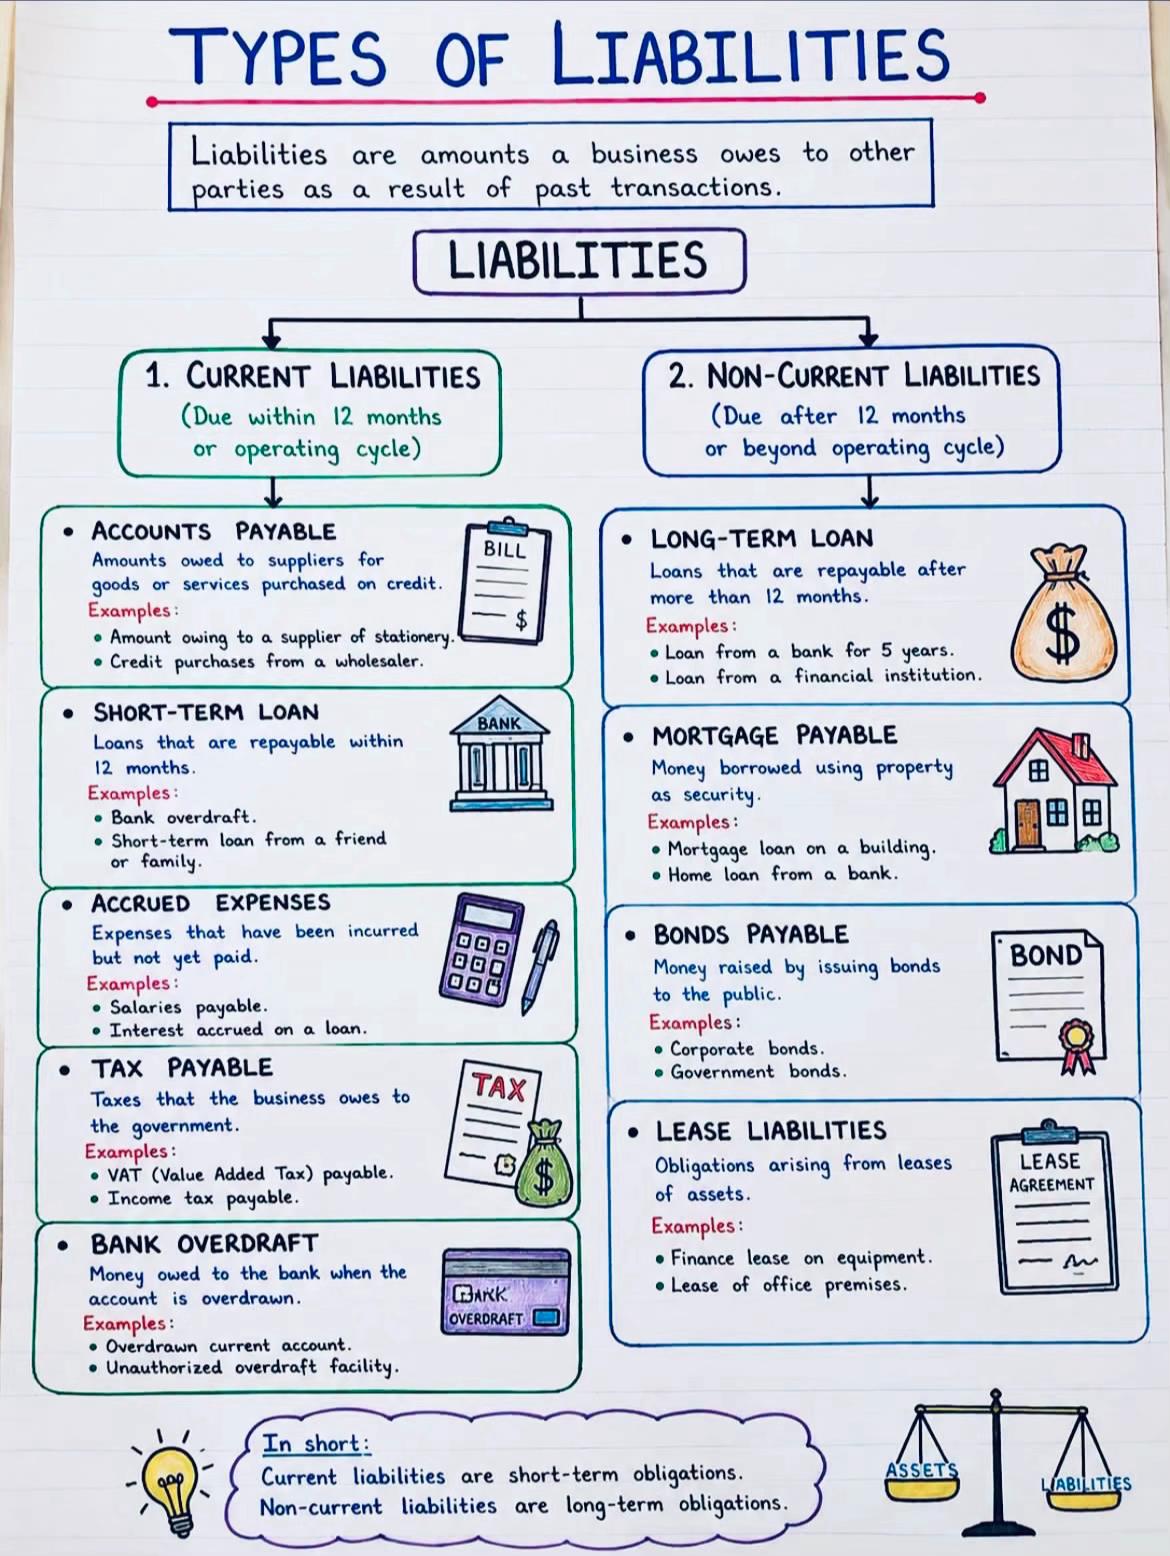 TYPES OF LIABILITIES
Liabilities are amounts a business owes to other
parties as a result of past transactions.
LIABILITIES
1. CURRENT LIABILITIES
(Due within 12 months
or operating cycle)
• ACCOUNTS PAYABLE
Amounts owed to suppliers for
goods or services purchased on credit.
Examples:
• Amount owing to a supplier of stationery.
• Credit purchases from a wholesaler.
BILL
$
• SHORT-TERM LOAN
Loans that are repayable within
12 months.
Examples:
• Bank overdraft.
• Short-term loan from a friend
or family.
BANK
• ACCRUED EXPENSES
Expenses that have been incurred
but not yet paid.
Examples:
• Salaries payable.
• Interest accrued on a loan.
• TAX PAYABLE
Taxes that the business owes to
the government.
Examples:
• VAT (Value Added Tax) payable.
• Income tax payable.
TAX
$
• BANK OVERDRAFT
Money owed to the bank when the
account is overdrawn.
Examples:
• Overdrawn current account.
• Unauthorized overdraft facility.
BANK
OVERDRAFT
2. NON-CURRENT LIABILITIES
(Due after 12 months
or beyond operating cycle)
• LONG-TERM LOAN
Loans that are repayable after
more than 12 months.
Examples:
• Loan from a bank for 5 years.
• Loan from a financial institution.
$
• MORTGAGE PAYABLE
Money borrowed using property
as security.
Examples:
• Mortgage loan on a building.
• Home loan from a bank.
• BONDS PAYABLE
Money raised by issuing bonds
to the public.
Examples:
• Corporate bonds.
• Government bonds.
BOND
• LEASE LIABILITIES
Obligations arising from leases
of assets.
Examples:
• Finance lease on equipment.
• Lease of office premises.
LEASE
AGREEMENT
In short:
Current liabilities are short-term obligations.
Non-current liabilities are long-term obligations.
ASSETS
LIABILITIES